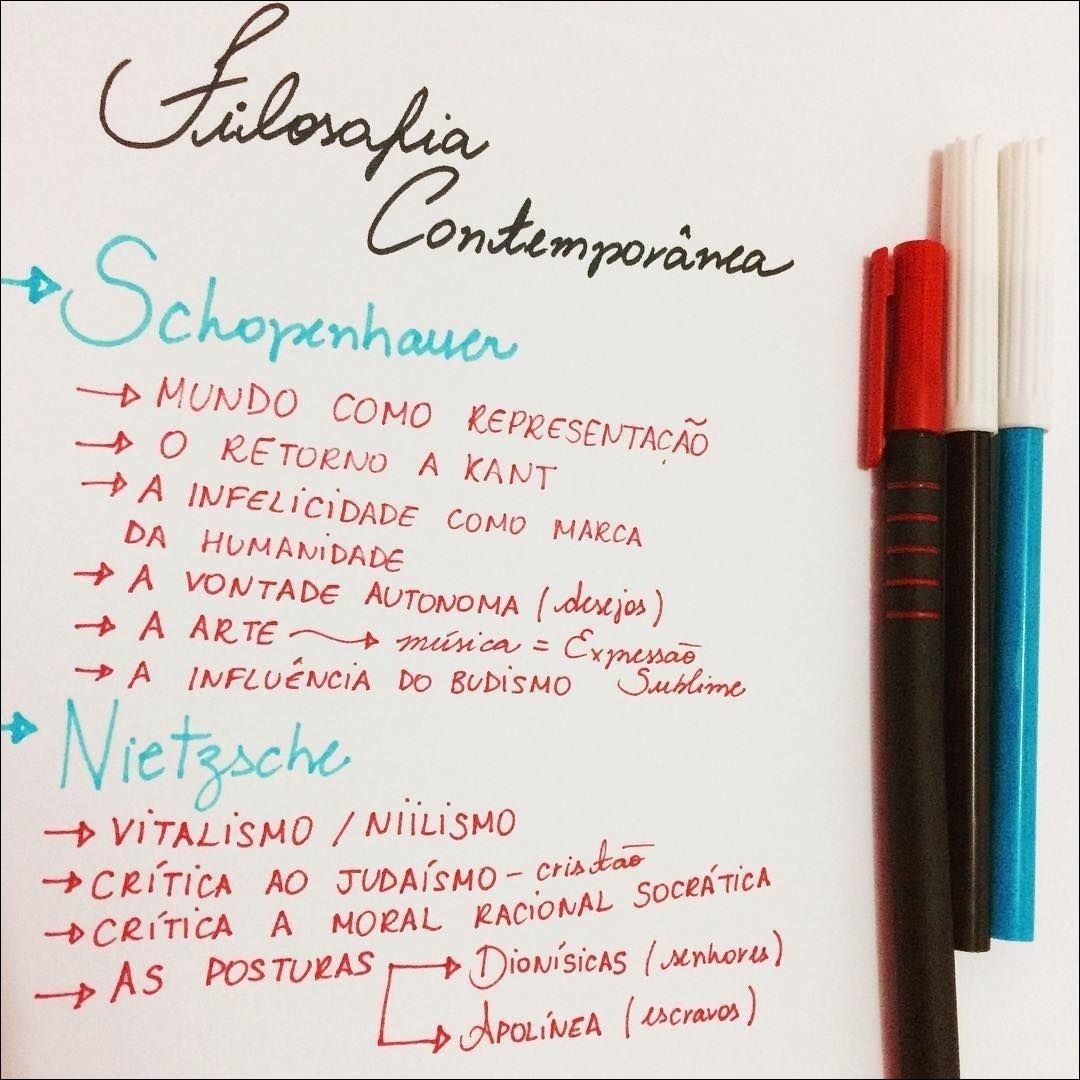 Filosofia
Contemporânea
Schopenhauer
MUNDO COMO REPRESENTAÇÃO
O RETORNO A KANT
A INFELICIDADE COMO MARCA
DA HUMANIDADE
A VONTADE AUTONOMA (desejos)
A ARTE → música = Expressão
Sublime
A INFLUÊNCIA DO BUDISMO
Nietzsche
VITALISMO / NIILISMO
CRÍTICA AO JUDAÍSMO - cristão
CRÍTICA A MORAL RACIONAL SOCRÁTICA
AS POSTURAS → DIONÍSICAS (senhores)
→ APOLÍNEA (escravos)